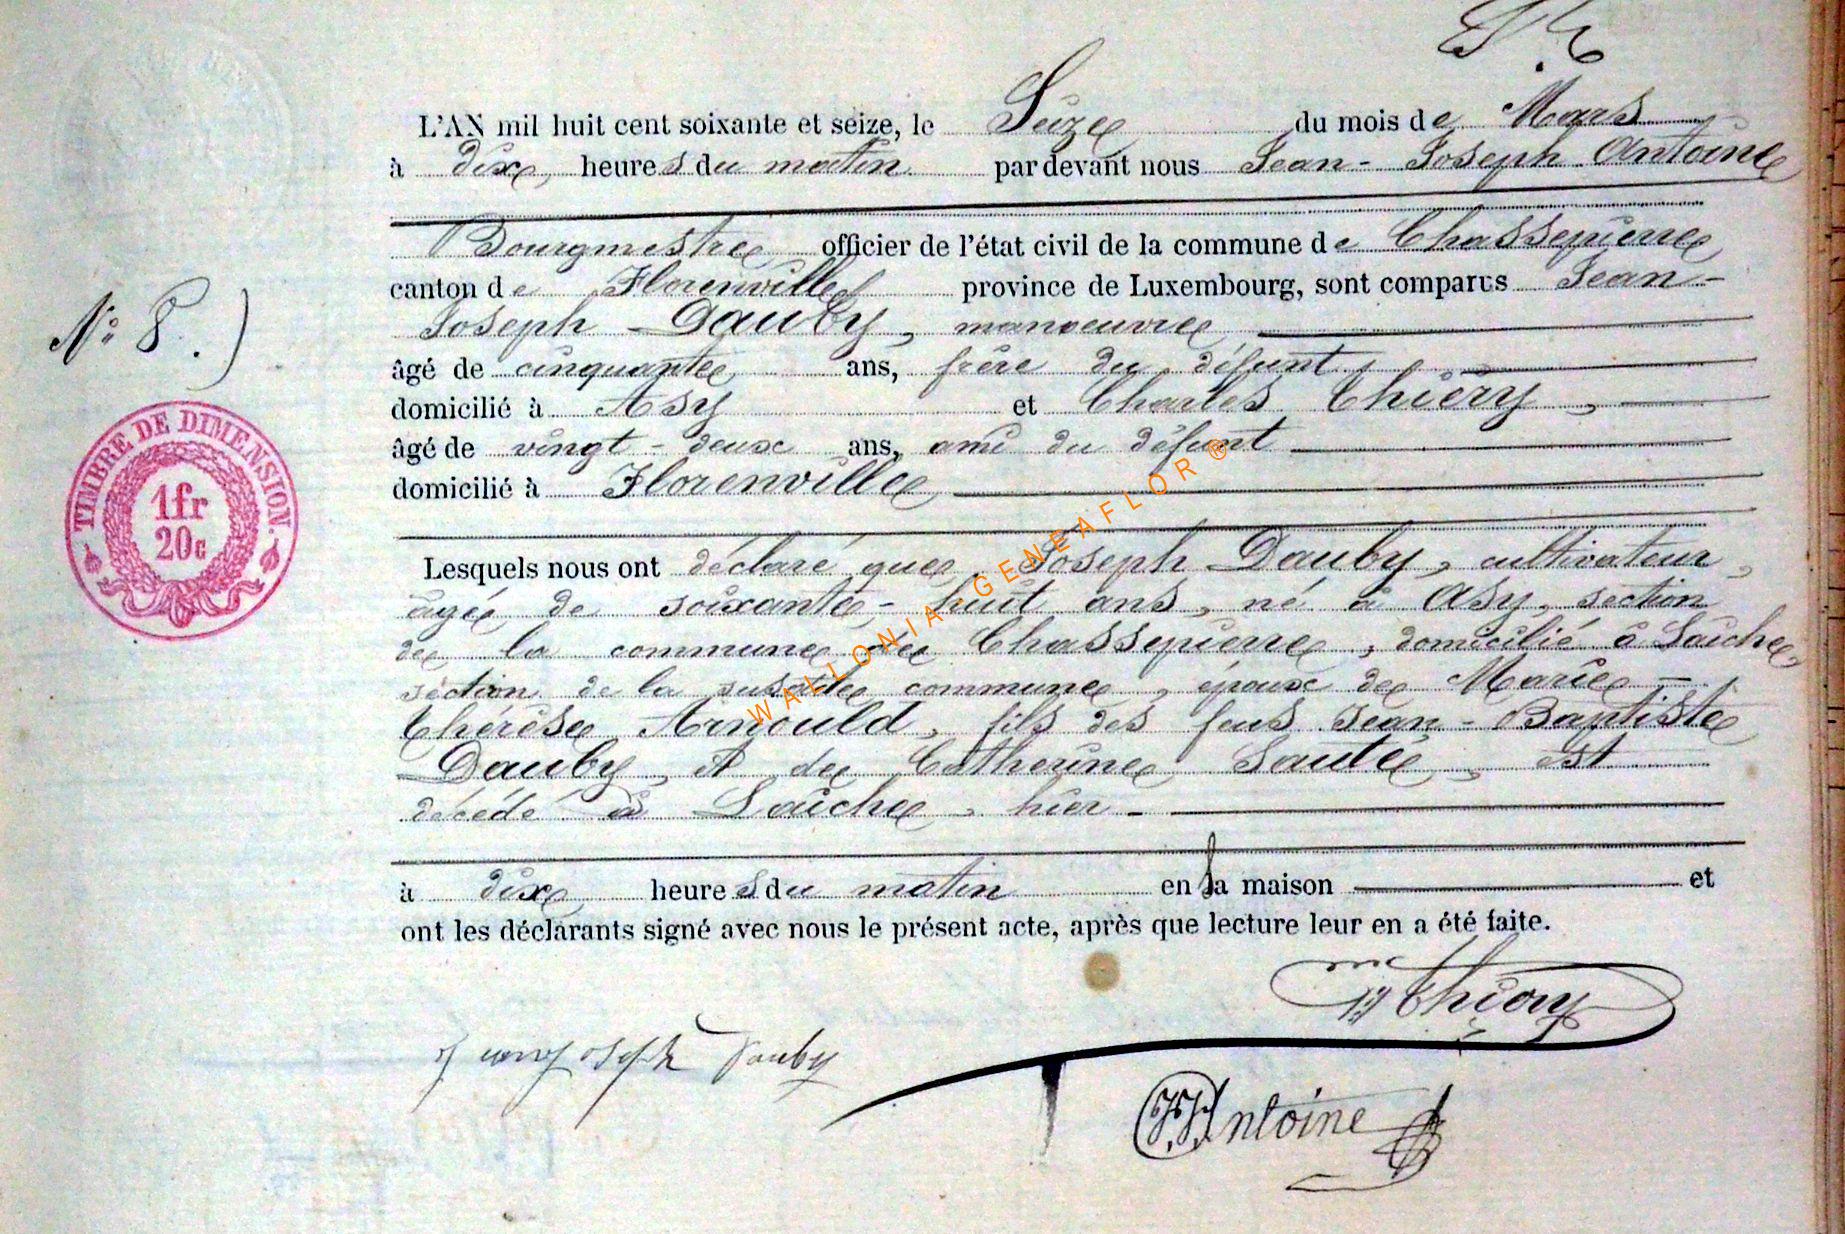 L'AN mil huit cent soixante et seize, le Seize du mois de Mars
à dix heures du matin par devant nous Jean-Joseph Antoine
Bourgmestre officier de l'état civil de la commune de Chassepierre
canton de Florenville province de Luxembourg, sont comparus Jean-
Joseph Dauby, manoeuvre
N° 8.)
âgé de cinquante ans, frère du défunt,
domicilié à Asy et Charles Thiéry,
âgé de vingt-deux ans, ami du défunt
domicilié à Florenville
TIMBRE DE DIMENSION.
1fr
20c
Lesquels nous ont déclaré que Joseph Dauby, cultivateur,
âgé de soixante-huit ans, né à Asy, section
de la commune de Chassepierre, domicilié à Laiche,
section de la susdite commune, époux de Marie-
Thérèse Arnould, fils des feus Jean-Baptiste
Dauby, et de Catherine Sauté, est
décédé à Laiche, hier
à dix heures du matin en sa maison et
ont les déclarants signé avec nous le présent acte, après que lecture leur en a été faite.
Thiéry
Joseph Dauby
JJAntoine
WALLONIA-GENEAFLOR ®